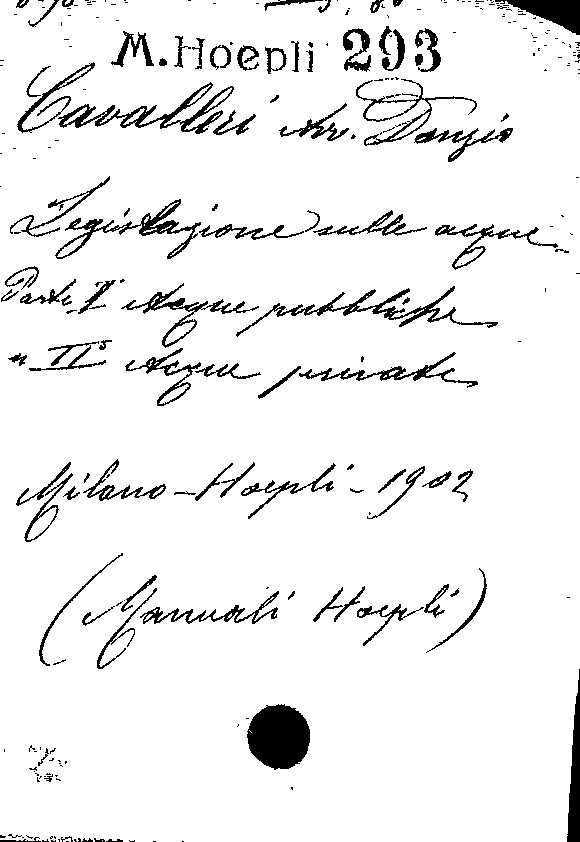 M. Hoepli 293
Cavalleri Avv. Donzio
Legislazione sulle acque
Parte I Acque pubbliche
" IIa Acque private
Milano - Hoepli - 1902
(Manuali Hoepli)